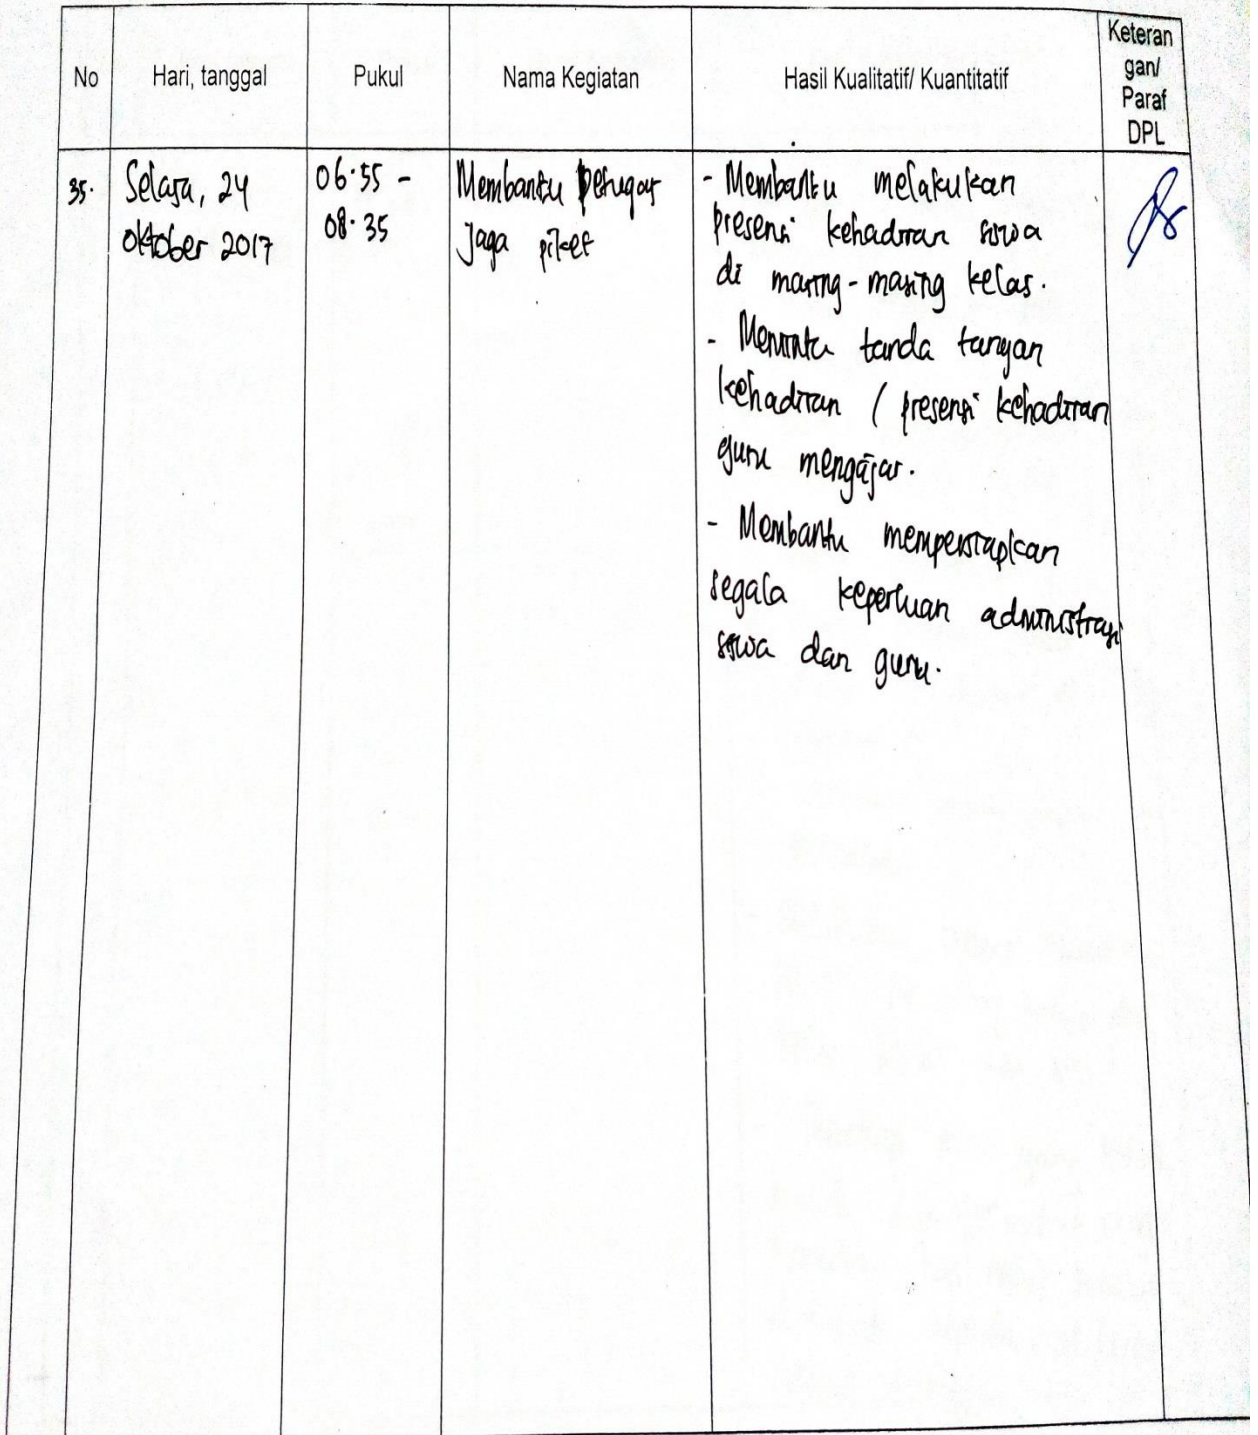 No
Hari, tanggal
Pukul
Nama Kegiatan
Hasil Kualitatif/ Kuantitatif
Keteran
gan/
Paraf
DPL
35.
Selasa, 24
oktober 2017
06.55 -
08.35
Membantu petugas
Jaga piket
- Membantu melakukan
presensi kehadiran siswa
di masing-masing kelas.
- Meminta tanda tangan
kehadiran / presensi kehadiran
guru mengajar.
- Membantu mempersiapkan
segala keperluan administrasi
siswa dan guru.